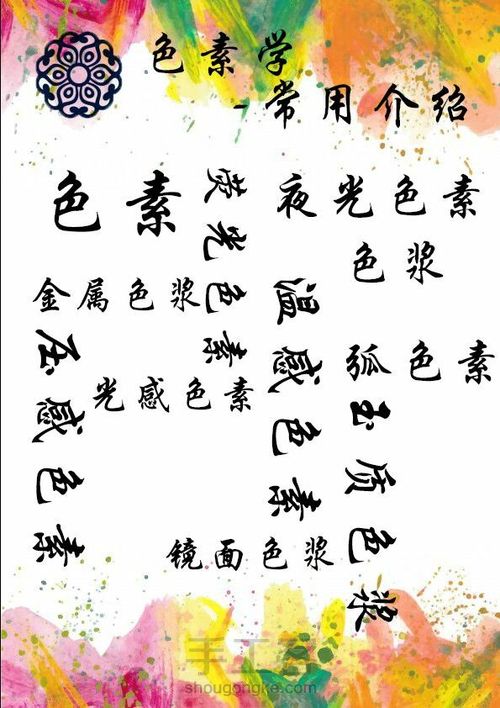 色素学
-常用介绍
色素
荧光色素
夜光色素
色浆
金属色浆
温感色素
压感色素
弧色素
光感色素
玉质色浆
镜面色浆
手工客
shougongke.com